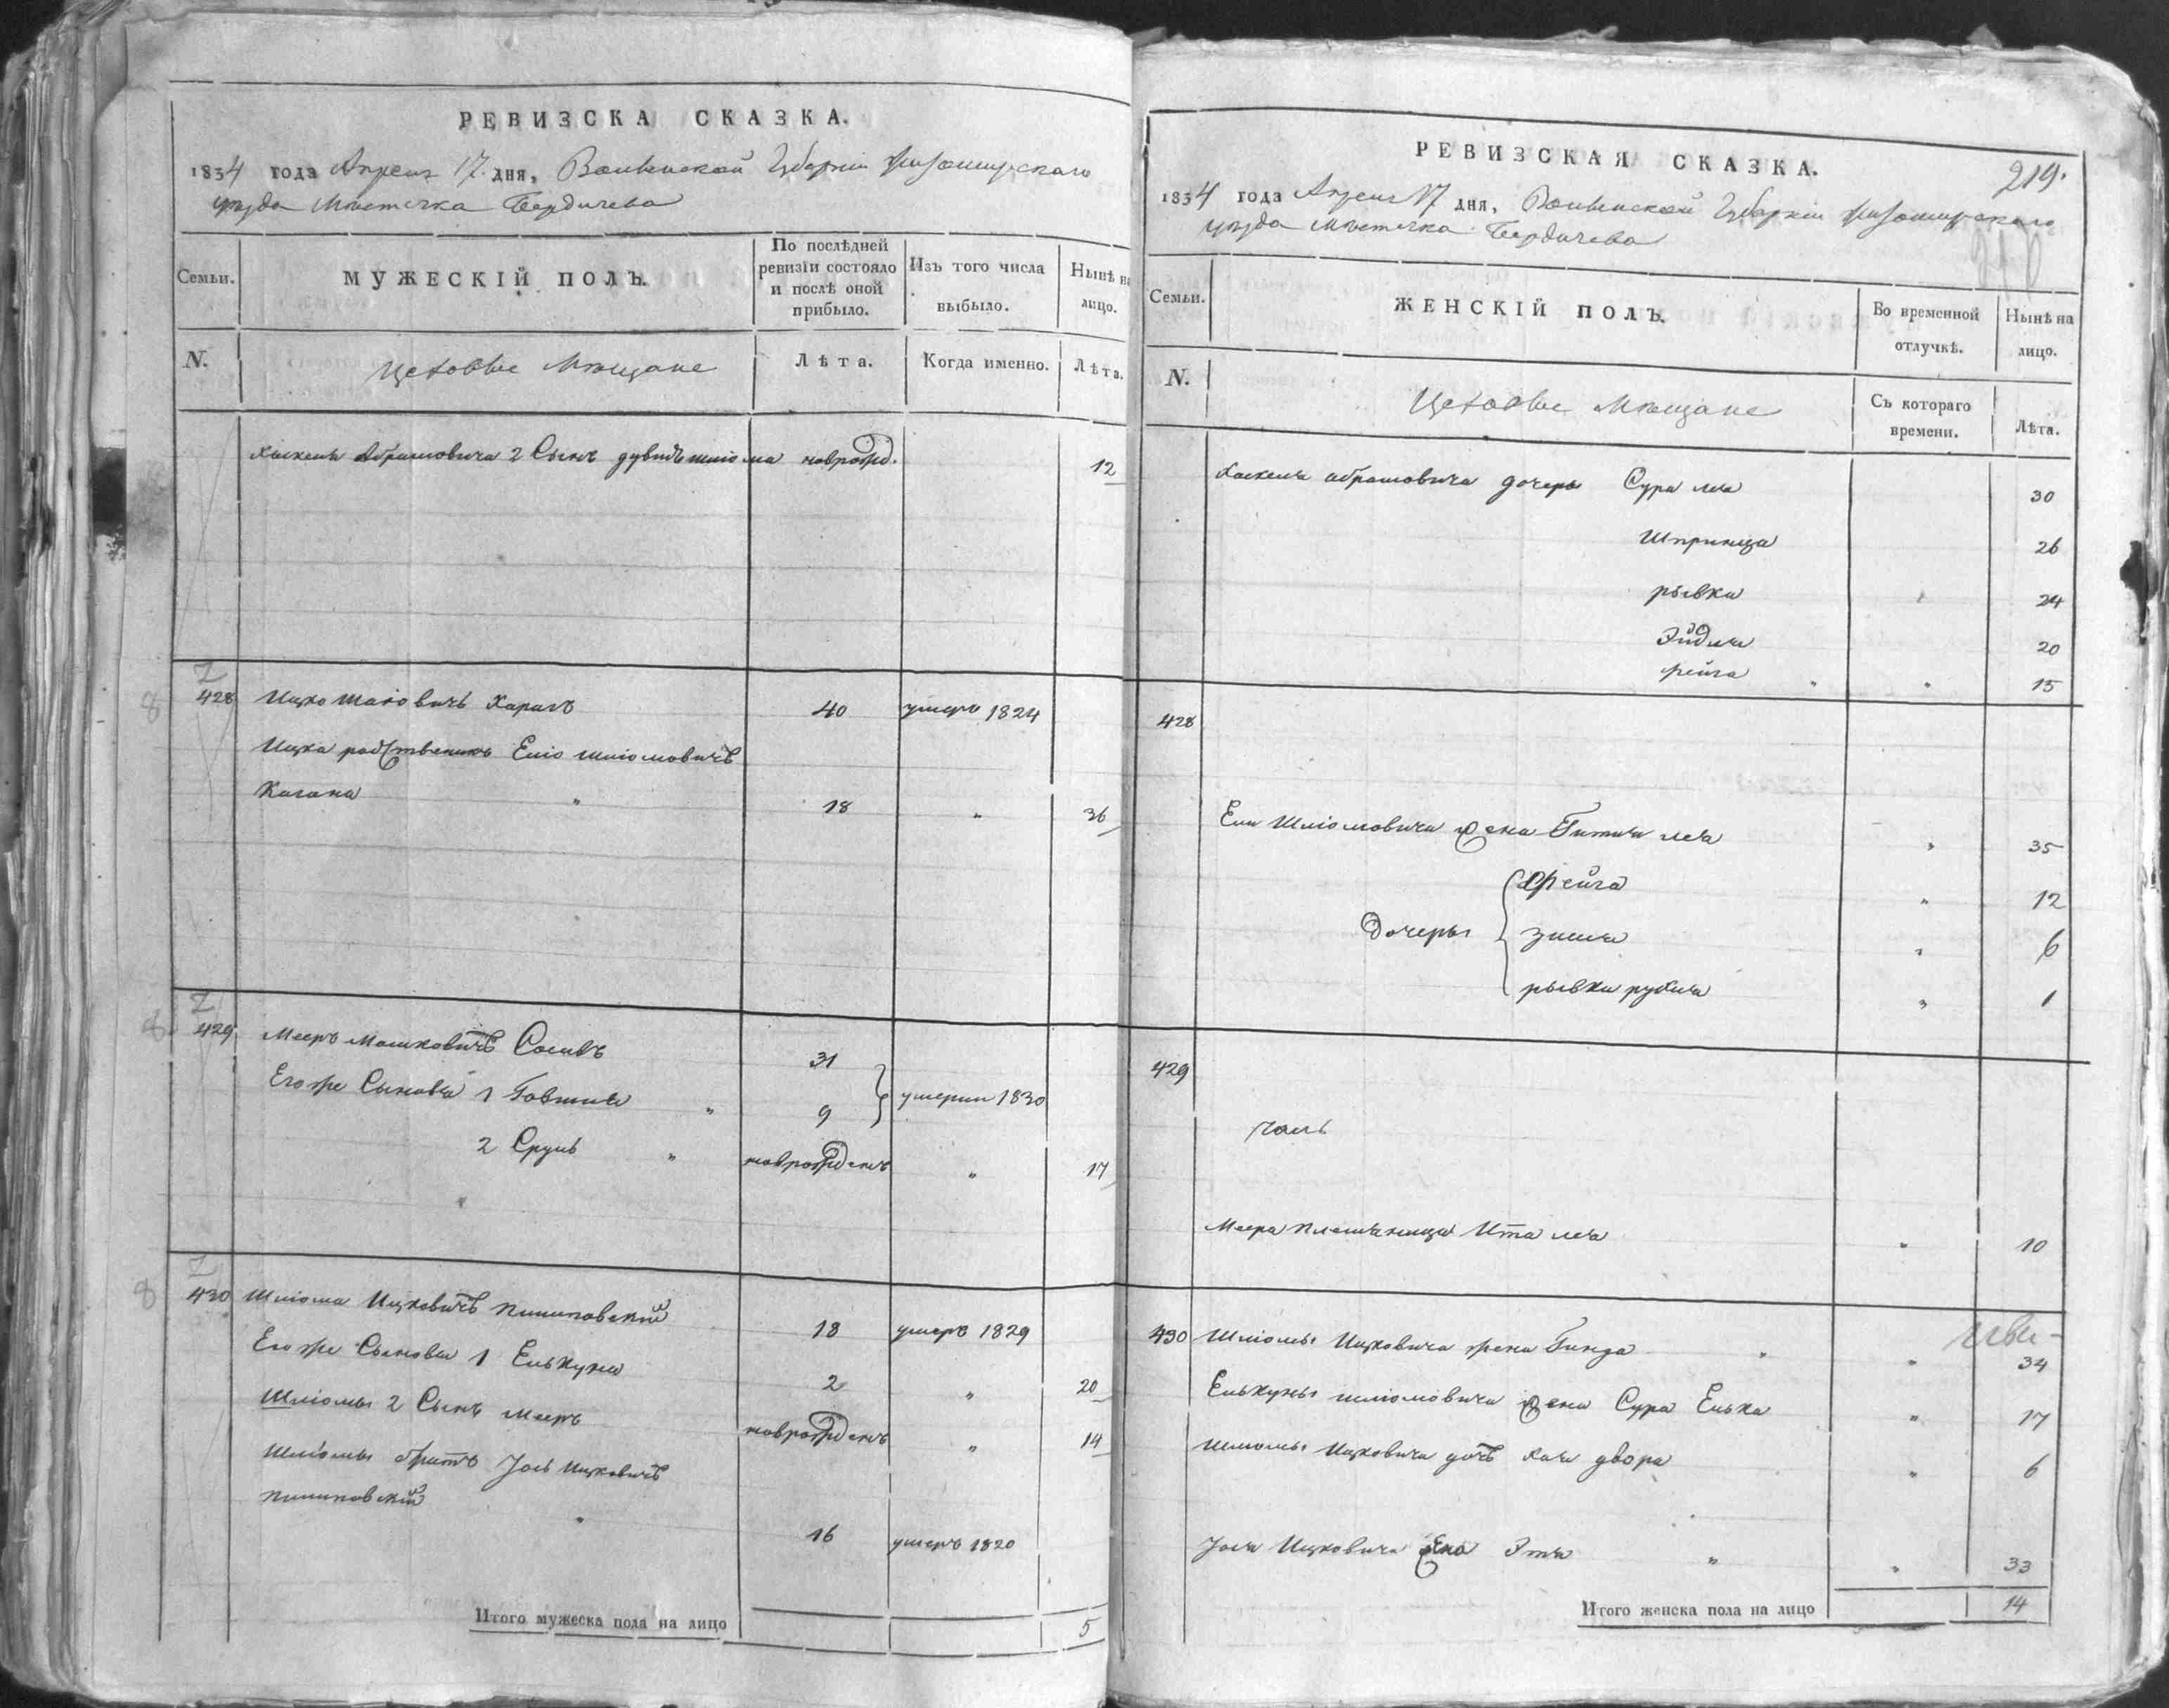 РЕВИЗСКА СКАЗКА.
1834 года Апреля 17 дня, Волынской Губерніи Житомирскаго
уѣзда Мѣстечка Бердичева
Семьи.
МУЖЕСКІЙ ПОЛЪ.
По послѣдней ревизіи состояло и послѣ оной прибыло.
Изъ того числа выбыло.
Нынѣ на лицо.
N.
Цеховые Мѣщане
Лѣта.
Когда именно.
Лѣта.
Хаскеля Абрамовича 2 Сынъ дувидъ шліома новрожд. 12
428 Ицко Маіовичъ 40 умеръ 1824
Ицка родственикъ Еліо Шліомовичъ
Кагана " 18 " 36
429 Мееръ Мошковичъ 31
Егоже Сыновья 1 Говшия " 9 } умерли 1830
2 Сруль " новрожденъ " 17
430 Шліома Ицковичъ 18 умеръ 1829
Егоже Сыновья 1 Елькуна 2 " 20
Шліомы 2 Сынъ Мееръ новрожденъ " 14
Шліомы братъ Јось Ицковичъ
" 16 умеръ 1820
Итого мужеска пола на лицо 5
РЕВИЗСКАЯ СКАЗКА.
219.
1834 года Апреля 17 дня, Волынской Губерніи Житомирскаго
уѣзда Мѣстечка Бердичева
Семьи.
ЖЕНСКІЙ ПОЛЪ.
Во временной отлучкѣ.
Нынѣ на лицо.
N.
Цеховые Мѣщане
Съ котораго времени.
Лѣта.
Хаскеля абрамовича дочеры Сура леа 30
Шпринца 26
рывка 24
Эйдля 20
фейга " " 15
428
Ели Шліомовича жена Гитля леа " 35
Дочеры { Фейга " 12
зисля " 6
рывка рухля " 1
429
Меера племяница Ита леа " 10
430 Шліомы Ицковича жена Гинда " " 34
Елькуны шліомовича жена Сура Елька " 17
Шліомы Ицковича дочъ хая двора " 6
Јося Ицковича жена Этя " " 33
Итого женска пола на лицо 14